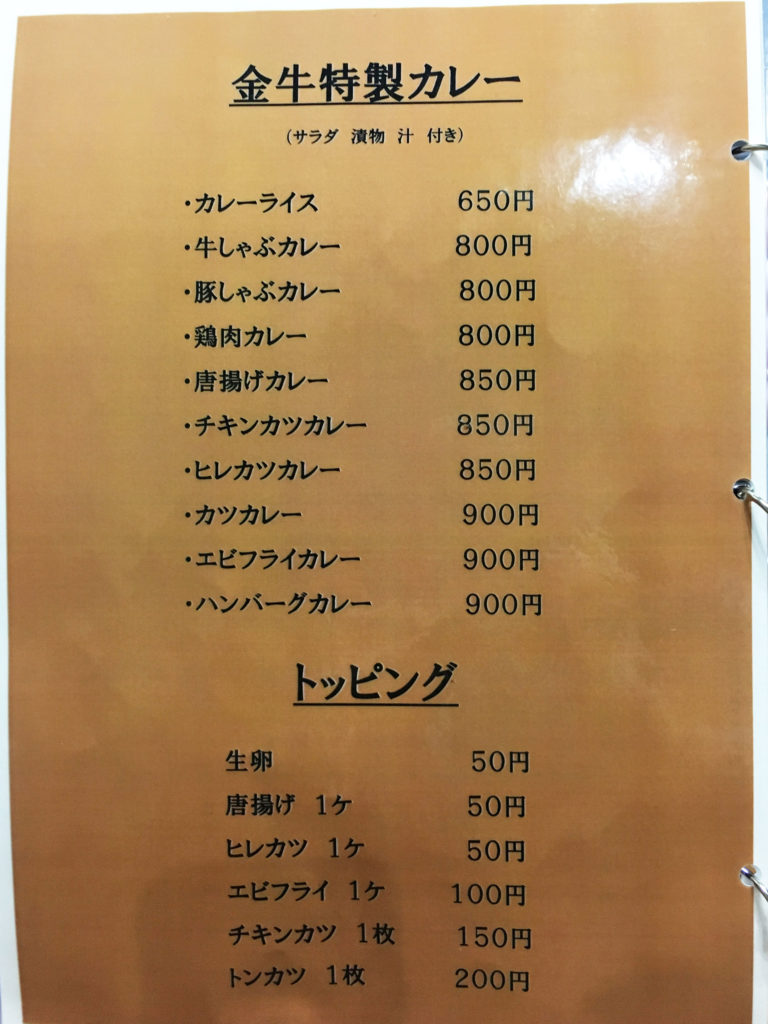 金牛特製カレー
（サラダ　漬物　汁　付き）
・カレーライス　650円
・牛しゃぶカレー　800円
・豚しゃぶカレー　800円
・鶏肉カレー　800円
・唐揚げカレー　850円
・チキンカツカレー　850円
・ヒレカツカレー　850円
・カツカレー　900円
・エビフライカレー　900円
・ハンバーグカレー　900円
トッピング
生卵　50円
唐揚げ　1ケ　50円
ヒレカツ　1ケ　50円
エビフライ　1ケ　100円
チキンカツ　1枚　150円
トンカツ　1枚　200円